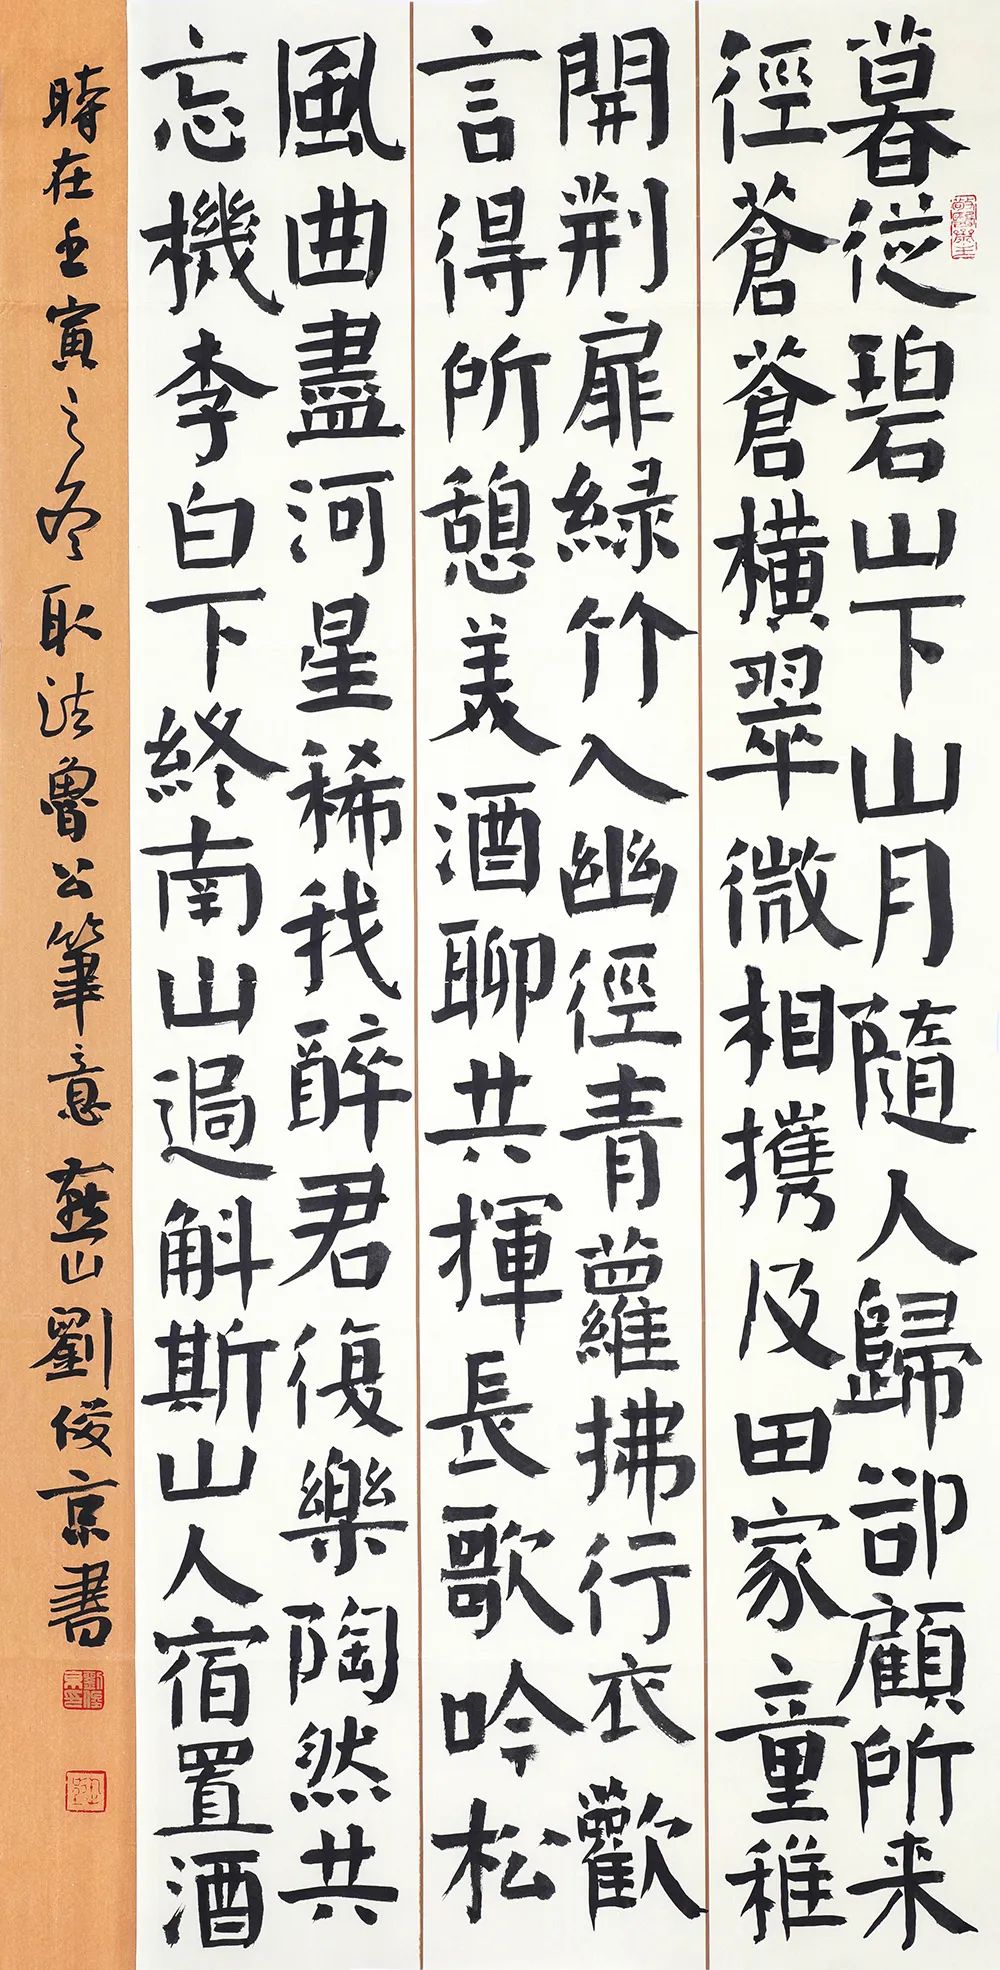 暮從碧山下山月隨人歸卻顧所来
徑蒼蒼橫翠微相攜及田家童稚
開荆扉緑竹入幽徑青蘿拂行衣歡
言得所憩美酒聊共揮長歌吟松
風曲盡河星稀我醉君復樂陶然共
忘機李白下終南山過斛斯山人宿置酒
時在壬寅之冬取法魯公筆意燕山劉俊京書